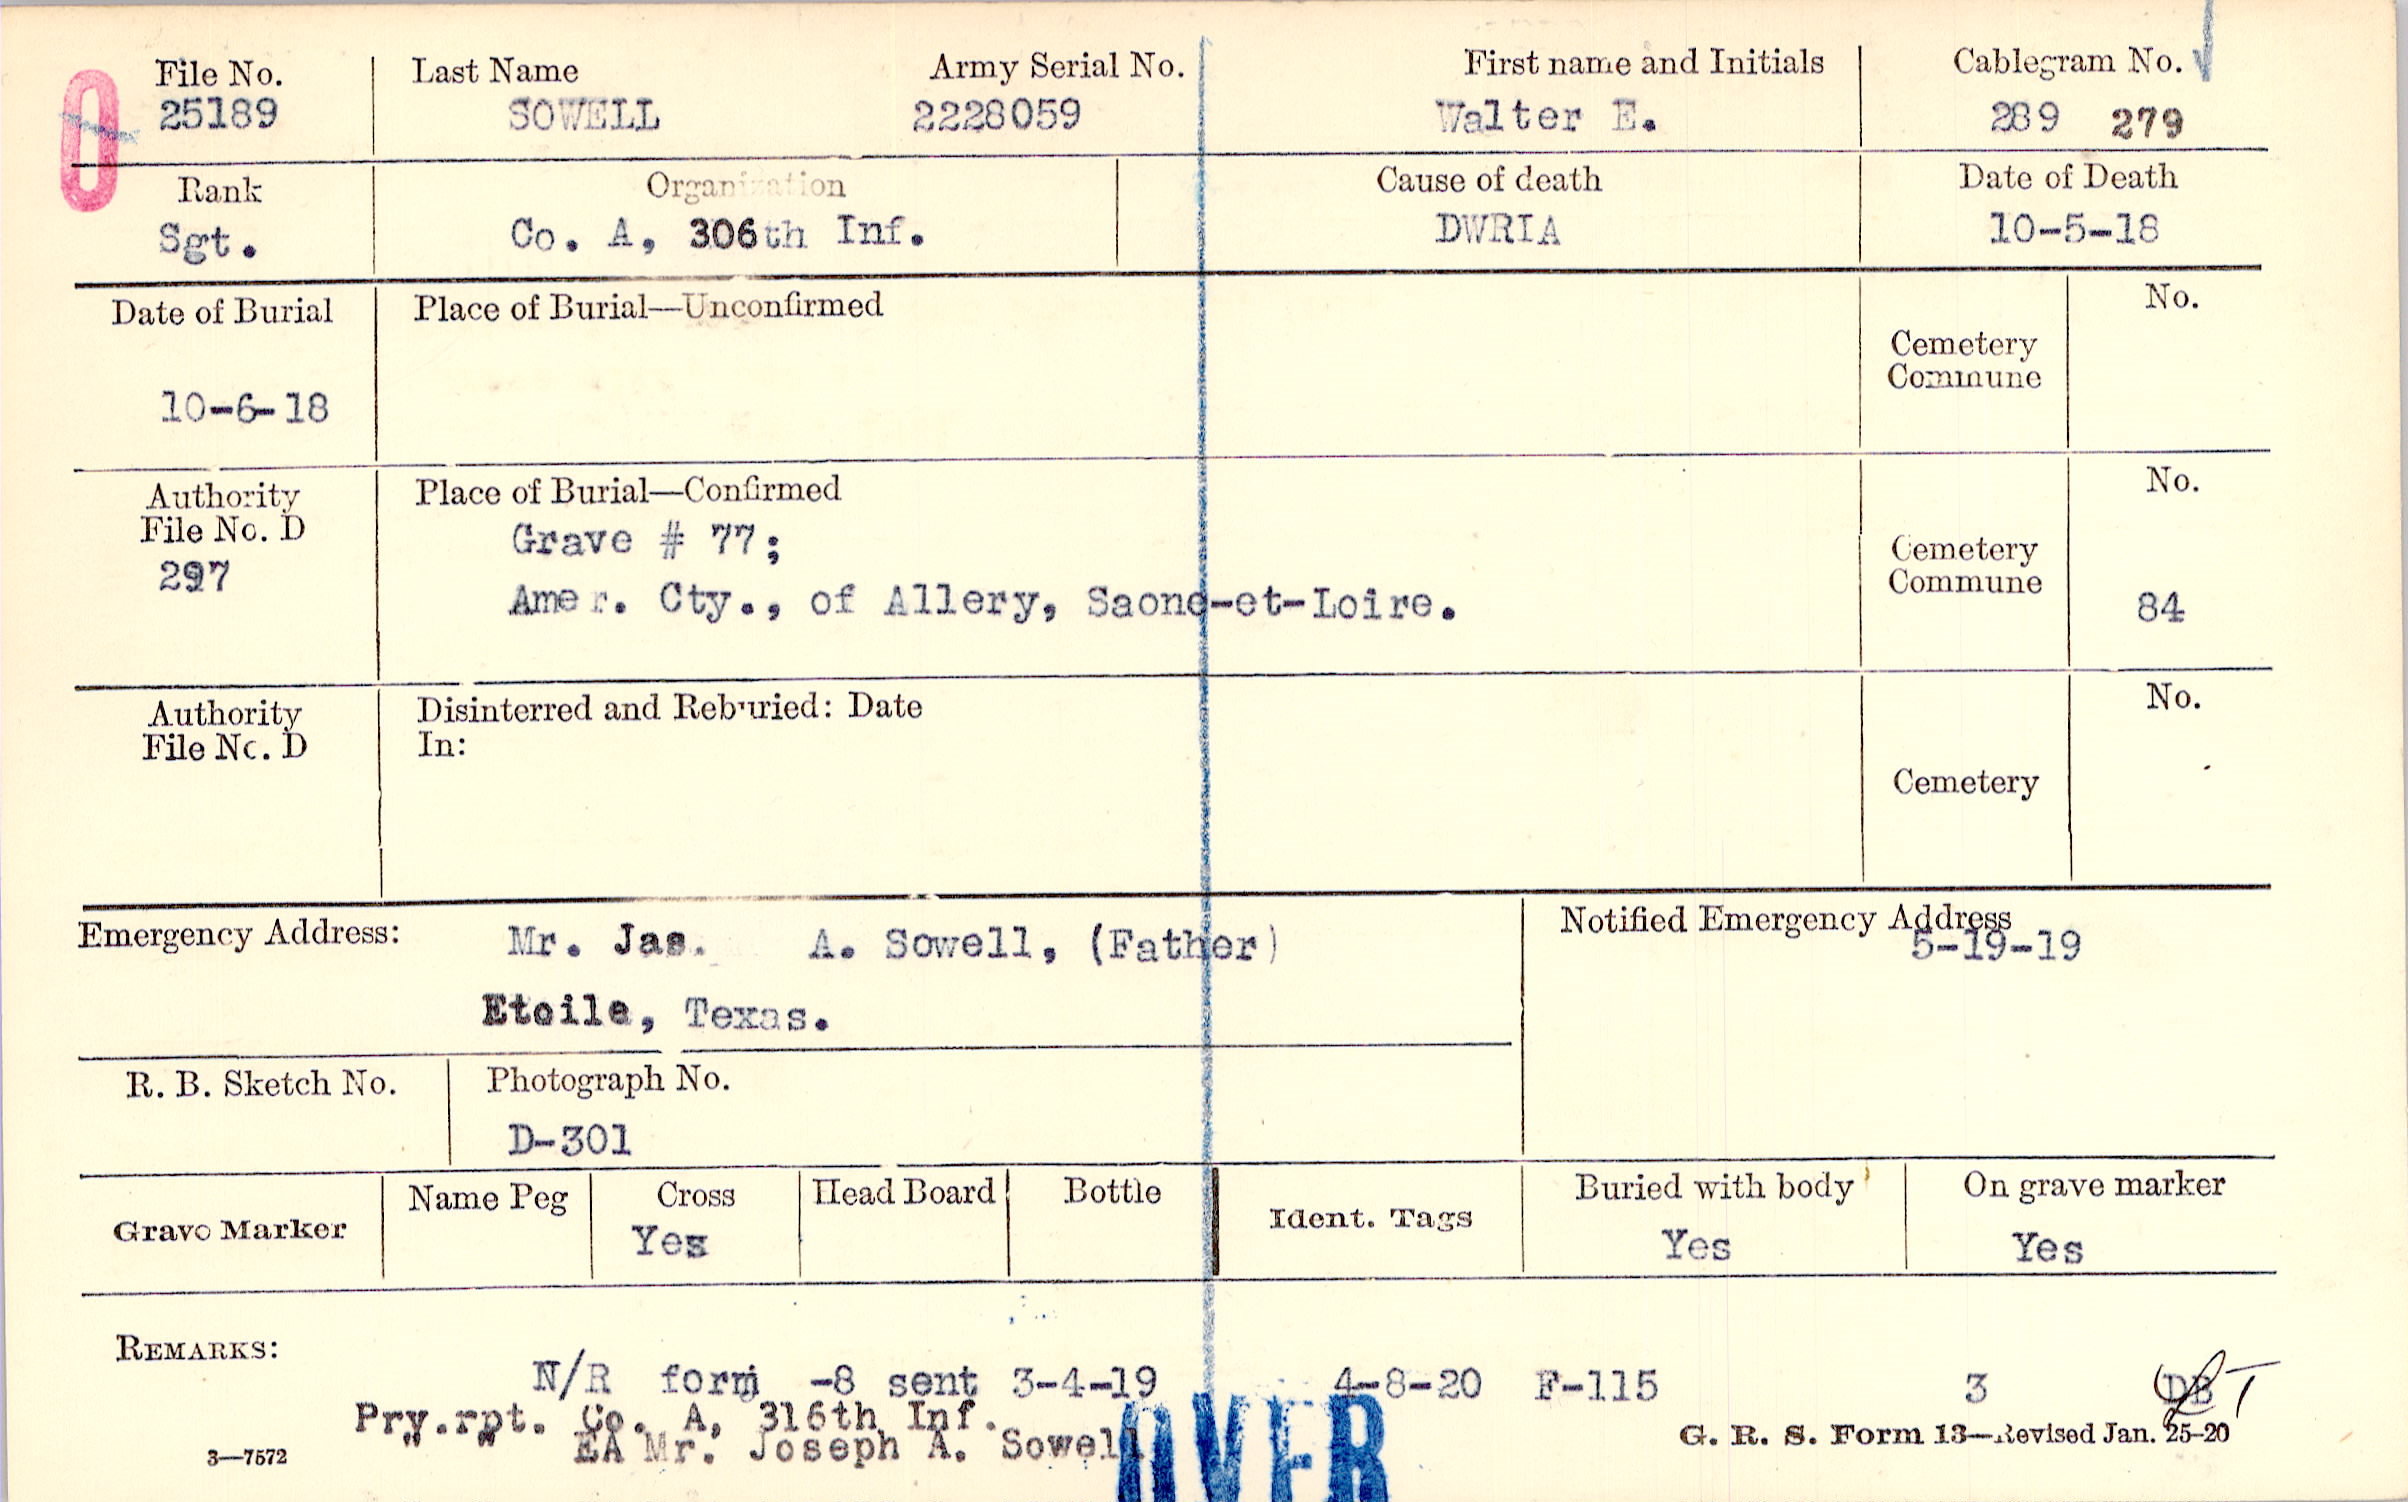 File No. Last Name Army Serial No. First name and Initials Cablegram No.
25189 SOWELL 2228059 Walter E. 289 279
Rank Organization Cause of death Date of Death
Sgt. Co. A, 306th Inf. DWRIA 10-5-18
Date of Burial Place of Burial—Unconfirmed No.
Cemetery
Commune
10-6-18
Authority Place of Burial—Confirmed No.
File No. D Grave # 77; Cemetery
297 Commune
Amer. Cty., of Allery, Saone-et-Loire. 84
Authority Disinterred and Reburied: Date No.
File No. D In:
Cemetery
Emergency Address: Mr. Jas. A. Sowell, (Father) Notified Emergency Address
5-19-19
Etoile, Texas.
R. B. Sketch No. Photograph No.
D-301
Name Peg Cross Head Board Bottle Buried with body On grave marker
Grave Marker Yes Ident. Tags Yes Yes
REMARKS:
N/R form -8 sent 3-4-19 4-8-20 F-115 3 DB
Pry.rpt. Co. A, 316th Inf.
" " EA Mr. Joseph A. Sowell
3—7572 OVER G. R. S. Form 13—Revised Jan. 25-20